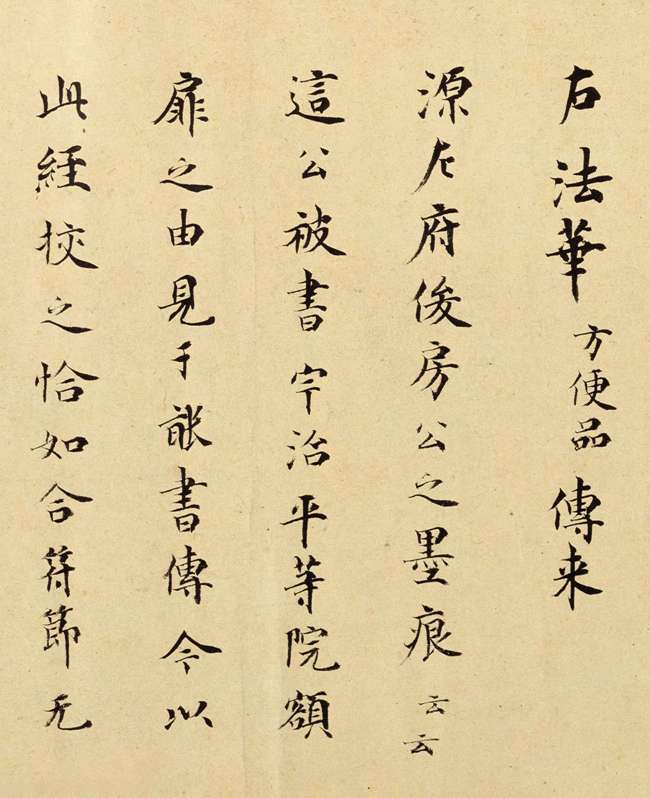 右法華方便品傳来
源左府俊房公之墨痕云云
這公被書宇治平等院額
扉之由見于能書傳今以
此經挍之恰如合符節尤